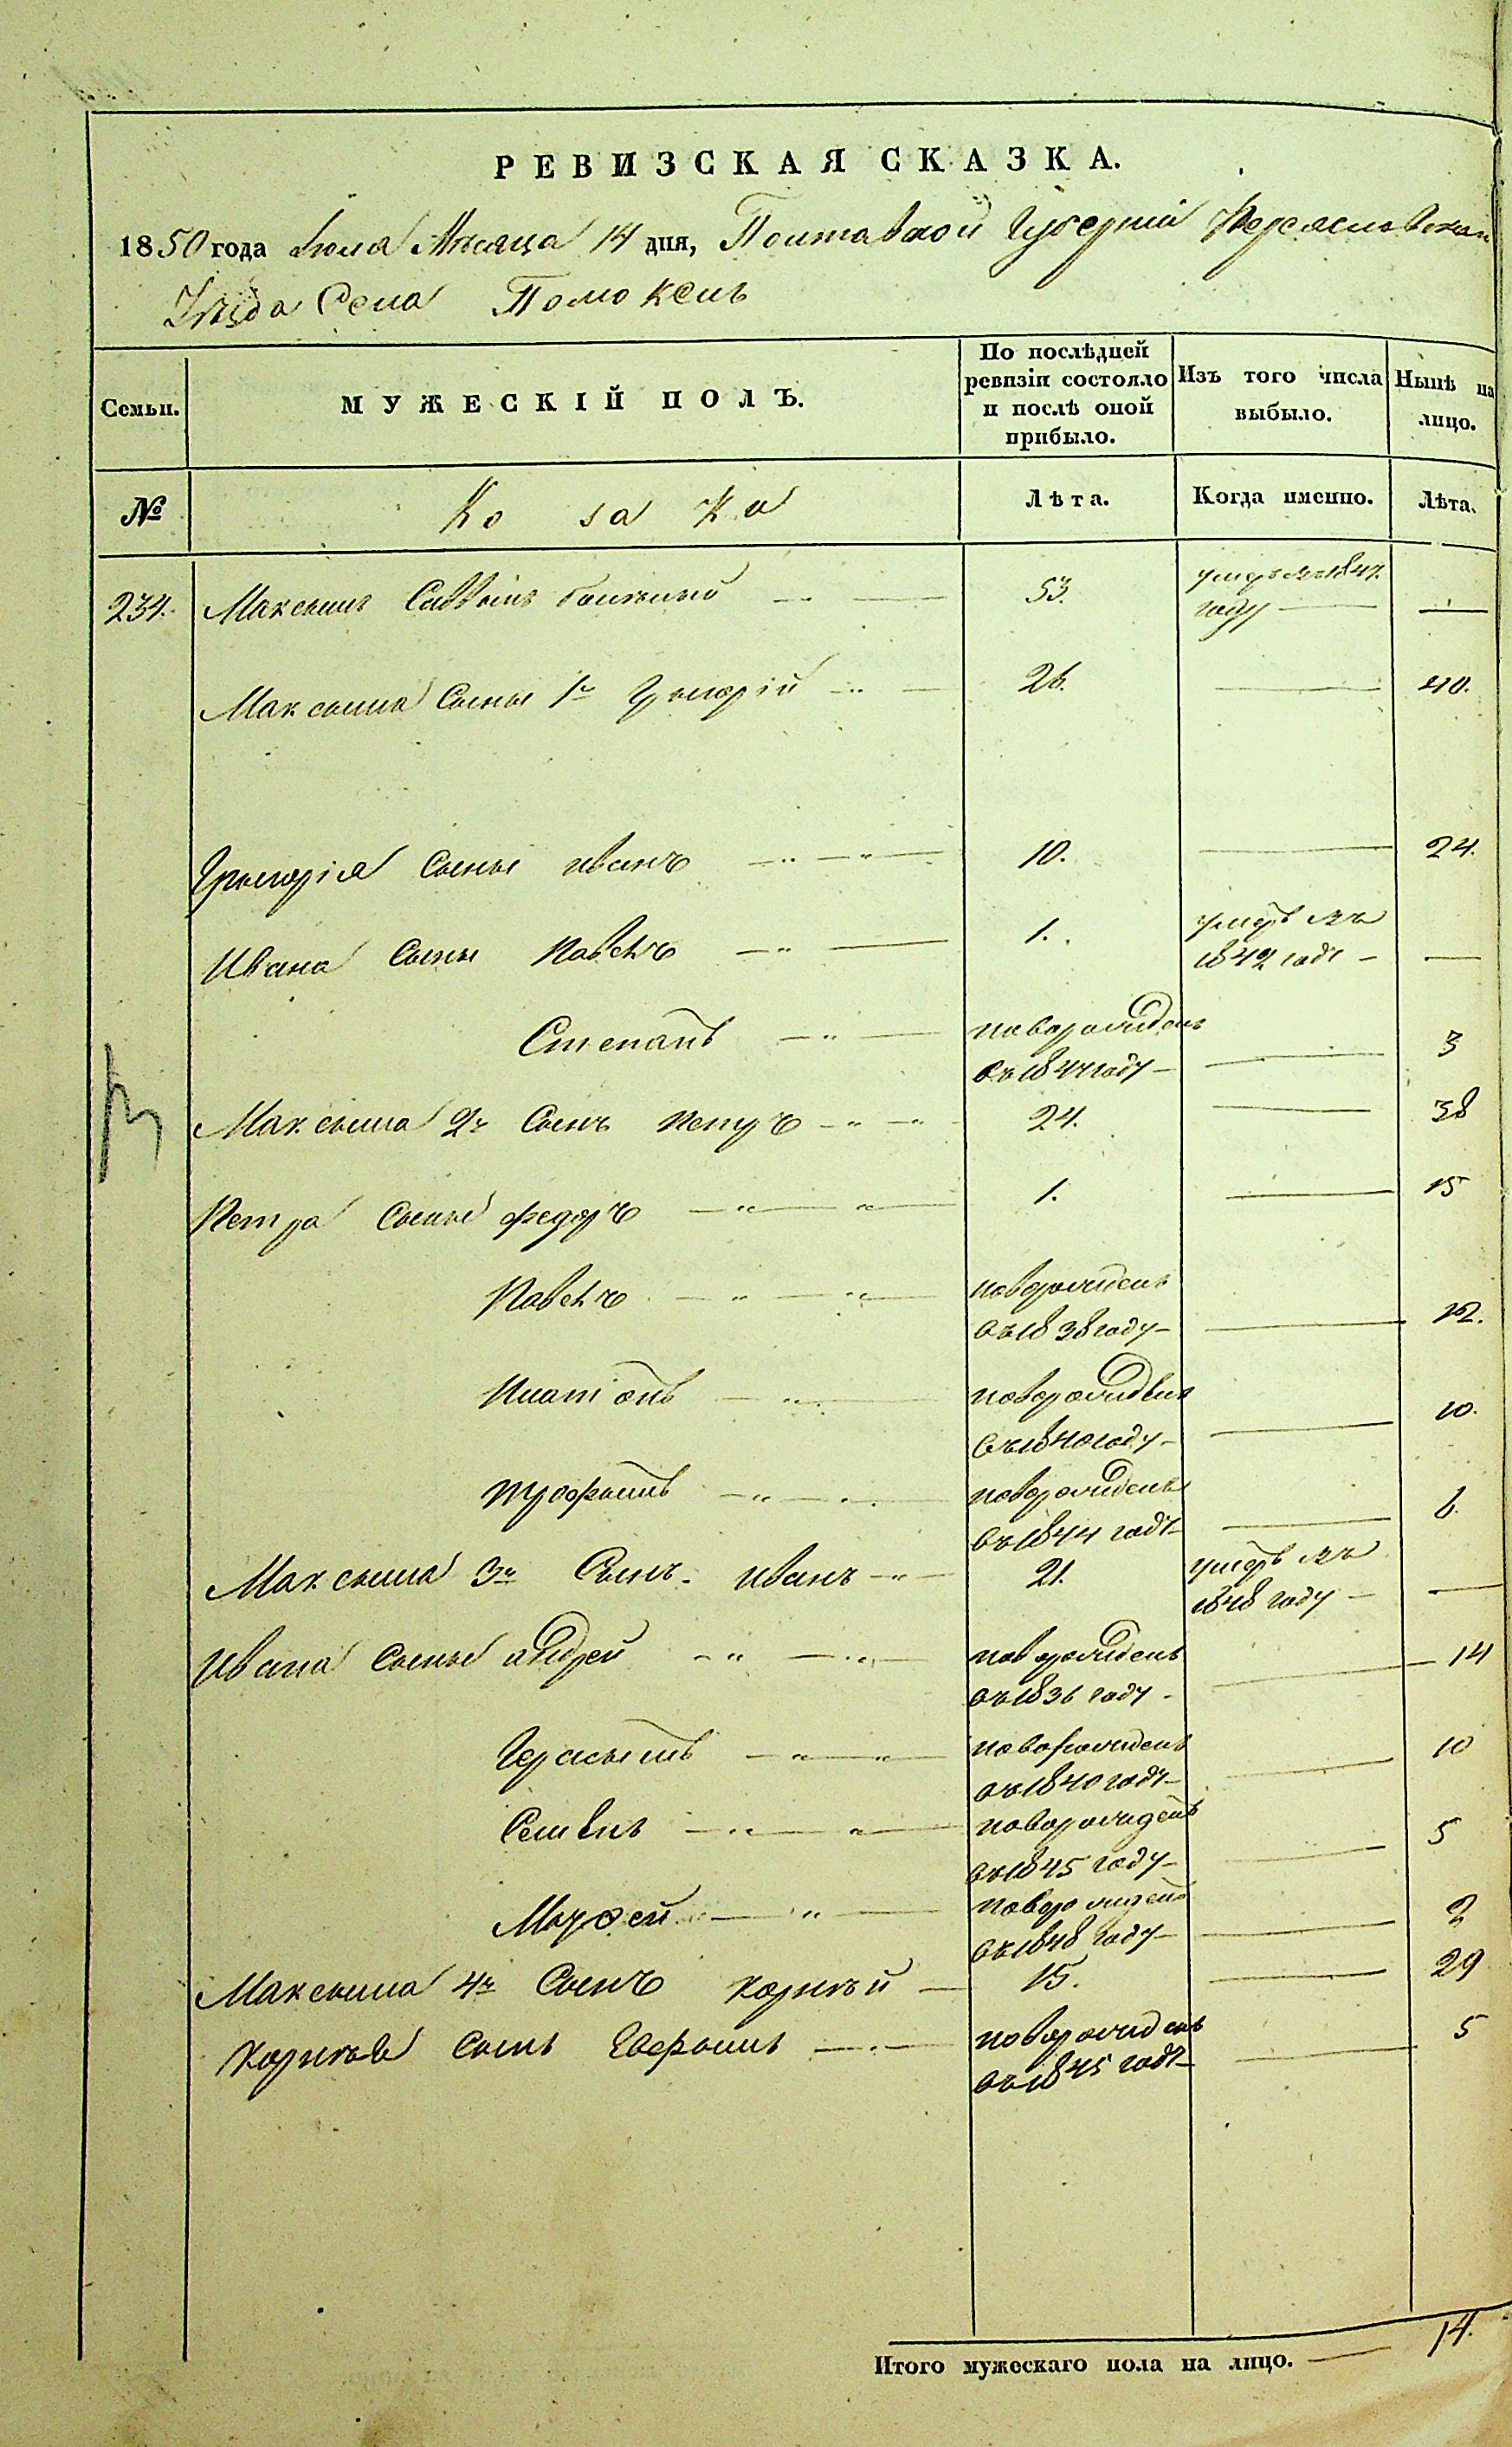 РЕВИЗСКАЯ СКАЗКА.
1850 года Июля Мѣсяца 14 дня, Полтавской Губерніи Переяславскаго
Уѣзда Села Помоклей
Семьи. МУЖЕСКІЙ ПОЛЪ. По послѣдней ревизіи состояло и послѣ оной прибыло. Изъ того числа выбыло. Нынѣ на лицо.
№ Козаки Лѣта. Когда именно. Лѣта.
234. Максимъ Саввинъ 53. умеръ въ 1847. году —
Максима Сыны 1й Григорій 26. — 40.
Григорія Сыны иванъ 10. — 24.
Ивана Сыны Павелъ 1. умеръ въ 1842 году —
Степанъ новорожденъ въ 1847 году — 3
Максима 2й Сынъ Петръ 24. — 38
Петра Сыны федоръ 1. — 15
Павелъ новорожденъ въ 1838 году — 12.
Платонъ новорожденъ въ 1840 году — 10.
трофимъ новорожденъ въ 1844 году — 6.
Максима 3й Сынъ иванъ 21. умеръ въ 1848 году —
Ивана Сыны андрей новорожденъ въ 1836 году — 14
Герасимъ новорожденъ въ 1840 году — 10
Семенъ новорожденъ въ 1845 году — 5
новорожденъ въ 1848 году — 2
Максима 4й Сынъ корнѣй 15. — 29
корнѣя Сынъ Ефимъ новорожденъ въ 1845 году — 5
Итого мужескаго пола на лицо. — 14.